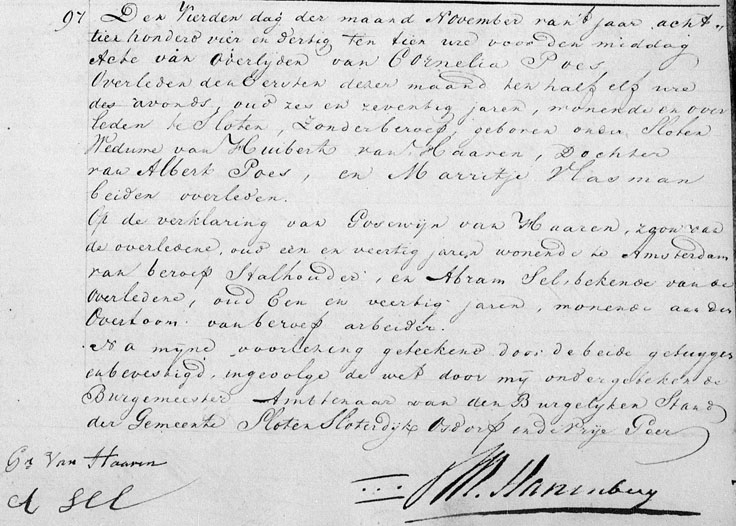 97 Den Vierden dag der maand November van 't jaar acht-
tien honderd vier en dertig ten tien ure voor den middag
Acte van Overlyden van Cornelia Poes,
Overleden den Eersten dezer maand ten half elf ure
des avonds, oud zes en zeventig jaren, wonende en over
leden te Sloten, Zonder beroep, geboren onder Sloten
Weduwe van Huibert van Haaren, Dochter
van Albert Poes, en Marritje Vlasman
beiden overleden.
Op de verklaring van Gosewijn van Haaren, zoon van
de overledene, oud een en veertig jaren wonende te Amsterdam
van beroep Stalhouder, en Abram Sel, bekende van de
Overledene, oud Een en veertig jaren, wonende aan den
Overtoom van beroep arbeider.
Na mijne voorlezing geteekend door de beide getuygen
en bevestigd, ingevolge de wet door mij ondergeteekende
Burgemeester Ambtenaar van den Burgelyken Stand
der Gemeente Sloten Sloterdijk Osdorp en de Vrije Geer
Gs Van Haaren
A Sel